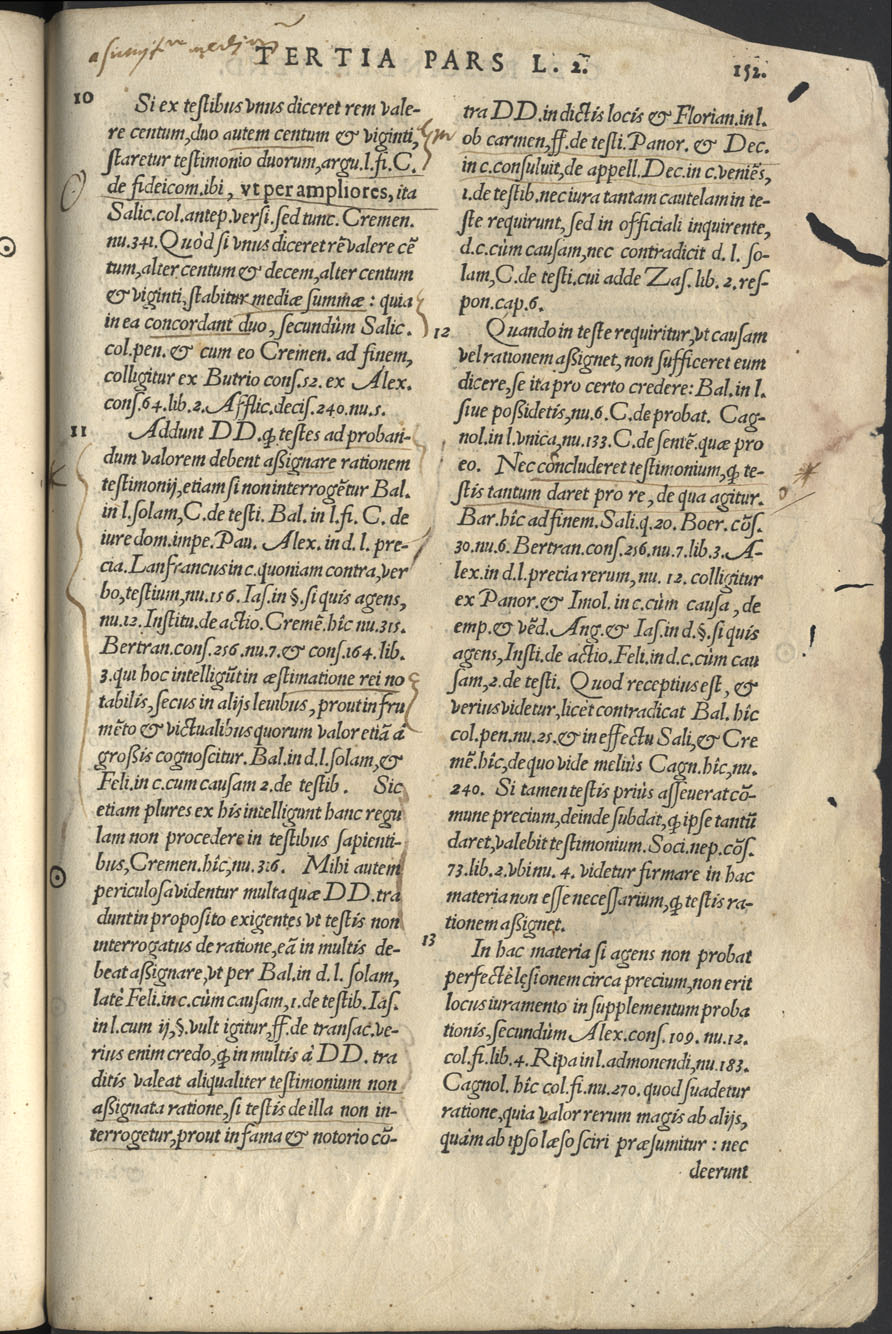 TERTIA PARS L. 2.
152.
10
Si ex testibus vnus diceret rem vale-
re centum, duo autem centum & viginti,
staretur testimonio duorum, argu.l.fi.C.
de fideicom.ibi, vt per ampliores, ita
Salic.col.antep.versi.sed tunc. Cremen.
nu.341.Quòd si vnus diceret rẽ valere cẽ
tum,alter centum & decem,alter centum
& viginti,stabitur mediæ summæ : quia
in ea concordant duo, secundùm Salic.
col.pen. & cum eo Cremen. ad finem,
colligitur ex Butrio cons.52. ex Alex.
cons.64.lib.2.Afflic.decis.240.nu.5.
11
Addunt DD.ꝙ testes ad proban-
dum valorem debent assignare rationem
testimonij,etiam si non interrogẽtur Bal.
in l.solam,C.de testi. Bal.in l.fi. C. de
iure dom.impe.Pau. Alex.in d.l. pre-
cia.Lanfrancus in c.quoniam contra,ver
bo,testium,nu.156.Ias.in §.si quis agens,
nu.12.Institu.de actio.Cremẽ.hîc nu.315.
Bertran.cons.256.nu.7.& cons.164.lib.
3.qui hoc intelligũt in æstimatione rei no
tabilis,secus in alijs leuibus,prout in fru
mẽto & victualibus quorum valor etiã à
grossis cognoscitur.Bal.in d.l.solam,&
Feli.in c.cum causam 2.de testib. Sic
etiam plures ex his intelligunt hanc regu
lam non procedere in testibus sapienti-
bus,Cremen.hîc,nu.316. Mihi autem
periculosa videntur multa quæ DD.tra
dunt in proposito exigentes vt testis non
interrogatus de ratione,eã in multis de-
beat assignare,vt per Bal.in d.l. solam,
latè Feli.in c.cùm causam,1.de testib.Ias.
in l.cum ij,§.vult igitur,ff.de transac.ve-
rius enim credo,ꝙ in multis à DD. tra
ditis valeat aliqualiter testimonium non
assignata ratione,si testis de illa non in-
terrogetur,prout in fama & notorio cõ-
tra DD.in dictis locis & Florian.in l.
ob carmen,ff.de testi.Panor. & Dec.
in c.consuluit,de appell.Dec.in c.veniẽs,
1.de testib.nec iura tantam cautelam in te-
ste requirunt, sed in officiali inquirente,
d.c.cùm causam,nec contradicit d. l. so-
lam,C.de testi.cui adde Zas. lib. 2.res-
pon.cap.6.
12
Quando in teste requiritur,vt causam
vel rationem assignet, non sufficeret eum
dicere,se ita pro certo credere: Bal.in l.
siue possidetis,nu.6.C.de probat. Cag-
nol.in l.vnica,nu.133.C.de sentẽ.quæ pro
eo. Nec concluderet testimonium,ꝙ te-
stis tantum daret pro re, de qua agitur.
Bar.hîc ad finem.Sali.q.20. Boer.cõs.
30.nu.6.Bertran.cons.256.nu.7.lib.3.A-
lex.in d.l.precia rerum, nu. 12.colligitur
ex Panor.& Imol.in c.cùm causa, de
emp.& vẽd. Ang.& Ias.in d.§.si quis
agens,Insti.de actio.Feli.in d.c.cùm cau
sam,2.de testi. Quod receptius est, &
verius videtur,licet contradicat Bal. hîc
col.pen.nu.25.& in effectu Sali,& Cre
mẽ.hîc,de quo vide meliùs Cagn.hîc,nu.
240. Si tamen testis priùs asseuerat cõ-
mune precium,deinde subdat,ꝙ ipse tantũ
daret,valebit testimonium.Soci.nep.cõs.
73.lib.2.vbi nu. 4. videtur firmare in hac
materia non esse necessarium,ꝙ testis ra-
tionem assignet.
13
In hac materia si agens non probat
perfectè lęsionem circa precium,non erit
locus iuramento in supplementum proba
tionis,secundùm Alex.cons.109.nu.12.
col.fi.lib.4.Ripa in l.admonendi,nu.183.
Cagnol. hîc col.fi.nu.270.quod suadetur
ratione,quia valor rerum magis ab alijs,
quàm ab ipso læso sciri præsumitur : nec
deerunt